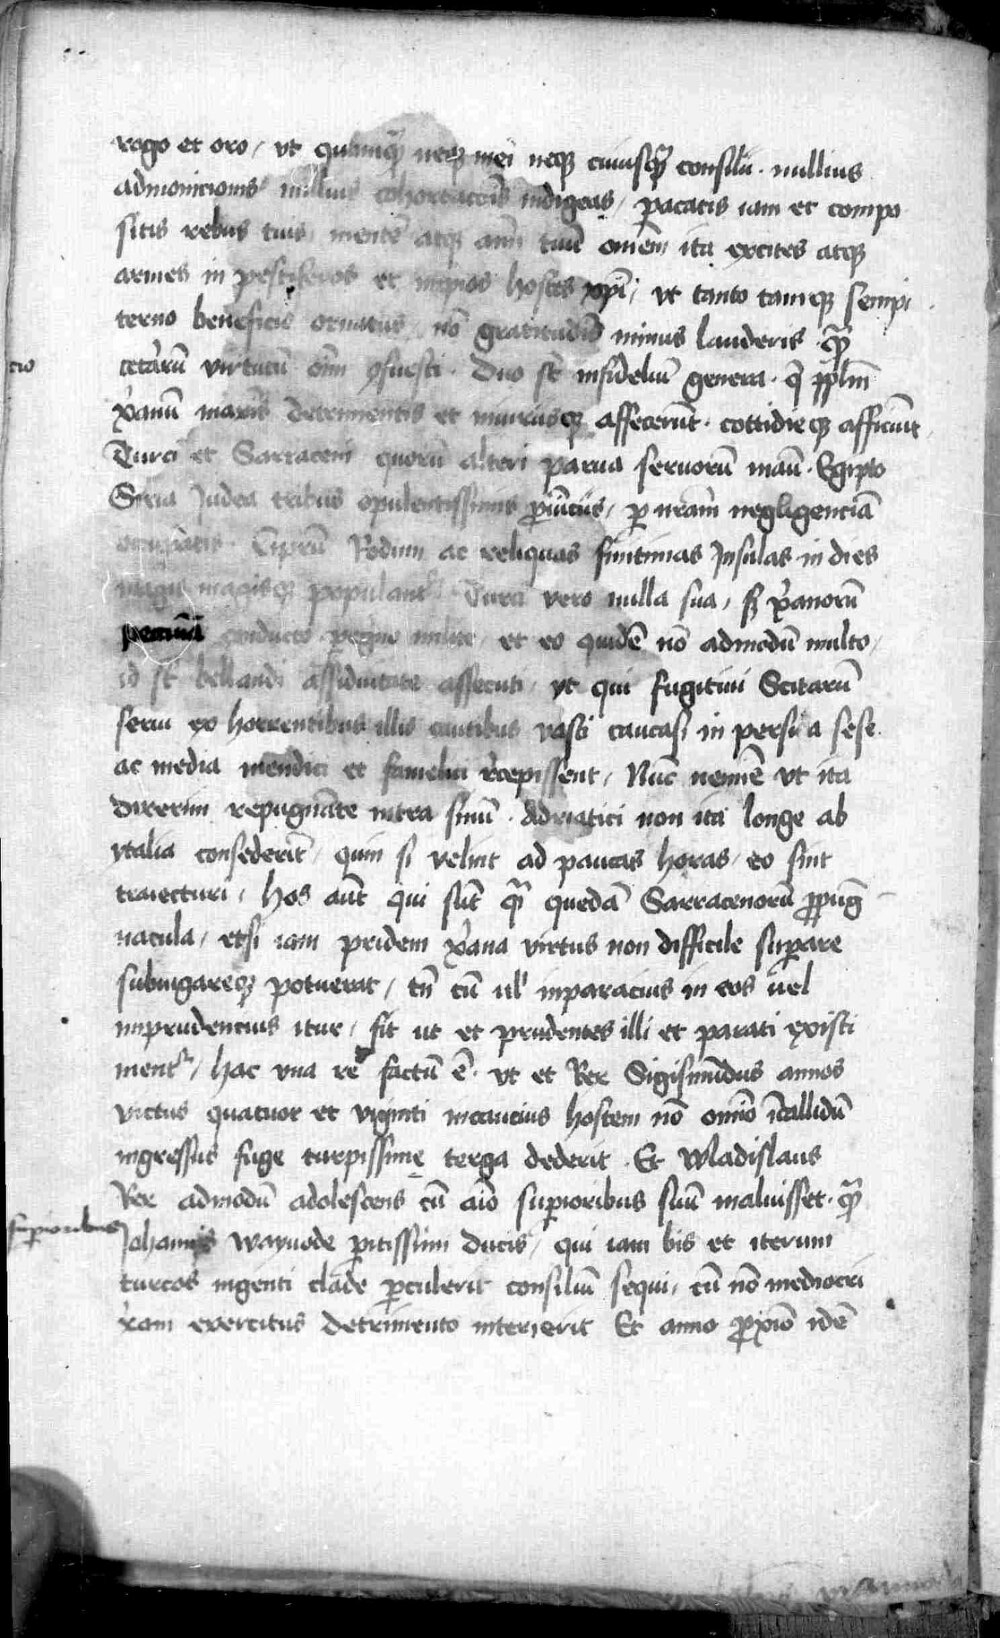 rogo et oro / ut quamqȝ neqȝ mei neqȝ cuiusqȝ consilii · nullius
admonicionis nullius cohortacōis indigeas / pacatis iam et compo
sitis rebus tuis mentē atqȝ aīm tuū omēm ita excites atqȝ
armes in pestiferos et impios hostes xp̄i / vt tanto tamqȝ sempi
terno beneficio ornatus nō gratitudīs minus lauderis qᷓ
ceterarū virtutū oīm ꝯsuesti · Duo st̄ infideliū genera · q̄ ꝓplm̄
xp̄anū maxīs detrimentis et iniuriisqȝ affecerūt · cottidieqȝ afficiūt
Turci et Sarraceni quorū alteri parua seruorū manū · Egipto
Siria Judea tribus opulentissimis ꝓuīciis / ꝑ nr̄am negligenciā
occupatis · Ciprū Rodum ac reliquas finitimas Insulas in dies
magis magisqȝ populant᷑ Turci vero nulla sua / sȝ xp̄anorū
pecunia conducto ꝑegrino milite / et eo quidē nō admodū multo /
id st̄ bellandi assiduitate assecuti / vt qui fugitiui Scitarū
serui ex horrentibus illis cautibus vasti caucasi in persida sese
ac media mendici et famelici recepissent / Nūc neminē vt ita
dixerim repugnāte intra sinū · Adriatici non ita longe ab
ytalia consederīt / quin si velint ad paucas horas / eo sint
traiecturi / Hos aūt qui sūt qᷓ quedā Sarracenorū ꝓpuḡ
nacula / etsi iam pridem xp̄ana virtus non difficile suꝑare
subiugareqȝ potuerat / tn̄ cū ul̄ inparacius in eos uel
imprudencius itur / fit ut et prudentes illi et parati existi
ment᷑ / hac vna re factū ē · vt et Rex Sigismūdus annos
victus quatuor et viginti incaucius hostem nō omīo īcallidū
ingressus fuge turpissime terga dederit · Et Wladislaus
Rex admodū adolescens cū aīo suꝑioribus suū maluisset · qᷓ
suꝑioribus
Johannis wayuode ꝑitissimi ducis / qui iam bis et iterum
turcos ingenti clāde ꝑculerit consiliū sequi / cū nō mediocri
xp̄iani exercitus detrimento interierit Et anno ꝓxiō idē